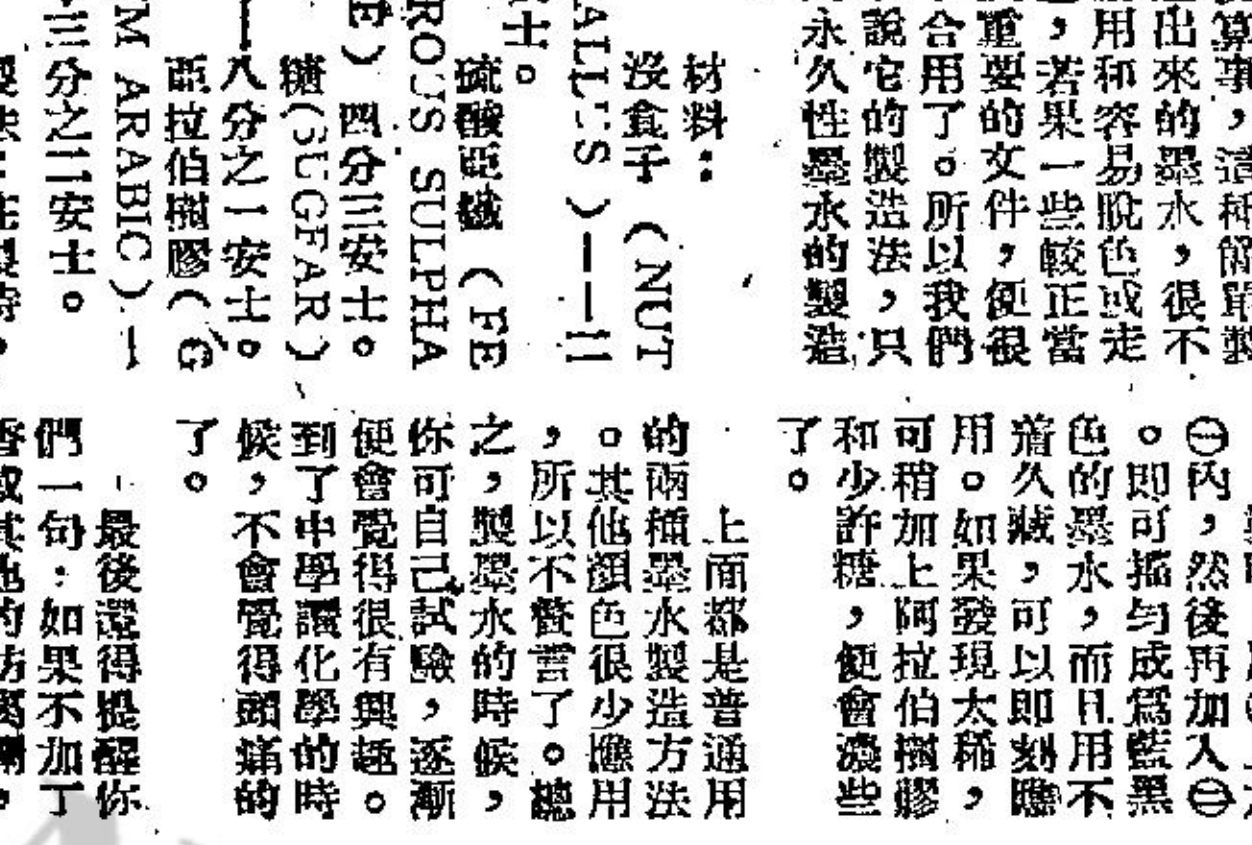 算事，這種簡單製
出來的墨水，很不
用和容易脫色或走
，若果一些較正當
重要的文件，便很
合用了。所以我們
說它的製造法，只
永久性墨水的製造
材料：
沒食子（NUT
ALL'S）——三
士。
硫酸亞鐵（FE
ROUS SULPHA
E）四分三安士。
糖(SUGFAR)
—八分之一安士。
亞拉伯樹膠(G
M ARABIC)—
三分之二安士。
㊀內，然後再加入㊀
。即可搖勻成爲藍黑
色的墨水，而且用不
着久藏，可以即刻應
用。如果發現太稀，
可稍加上阿拉伯樹膠
和少許糖，便會濃些
了。
上面都是普通用
的兩種墨水製造方法
。其他顏色很少應用
，所以不贅言了。總
之，製墨水的時候，
你可自己試驗，逐漸
便會覺得很有興趣。
到了中學讀化學的時
候，不會覺得頭痛的
了。
最後還得提醒你
們一句：如果不加丁
香或其他的防